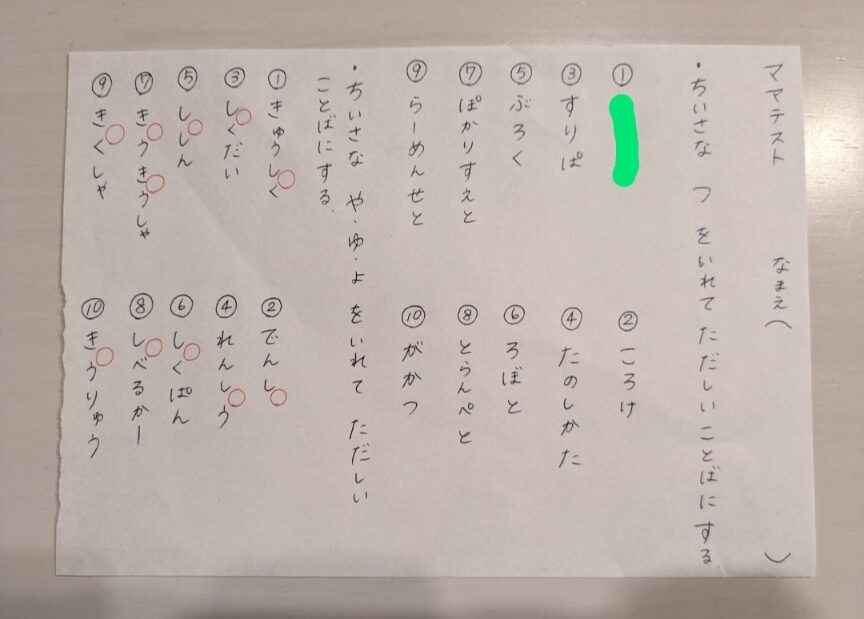 ママテスト なまえ( )
・ちいさな つ をいれて ただしいことばにする.
① ② ころけ
③ すりぱ ④ たのしかた
⑤ ぶろく ⑥ ろぼと
⑦ ぽかりすえと ⑧ とらんぺと
⑨ らーめんせと ⑩ がかつ
・ちいさな や・ゆ・よ をいれて ただしい
ことばにする.
① きゅうしく ② でんし
③ しくだい ④ れんしう
⑤ ししん ⑥ しくぱん
⑦ きうきうしゃ ⑧ しべるかー
⑨ きくしゃ ⑩ きうりゅう